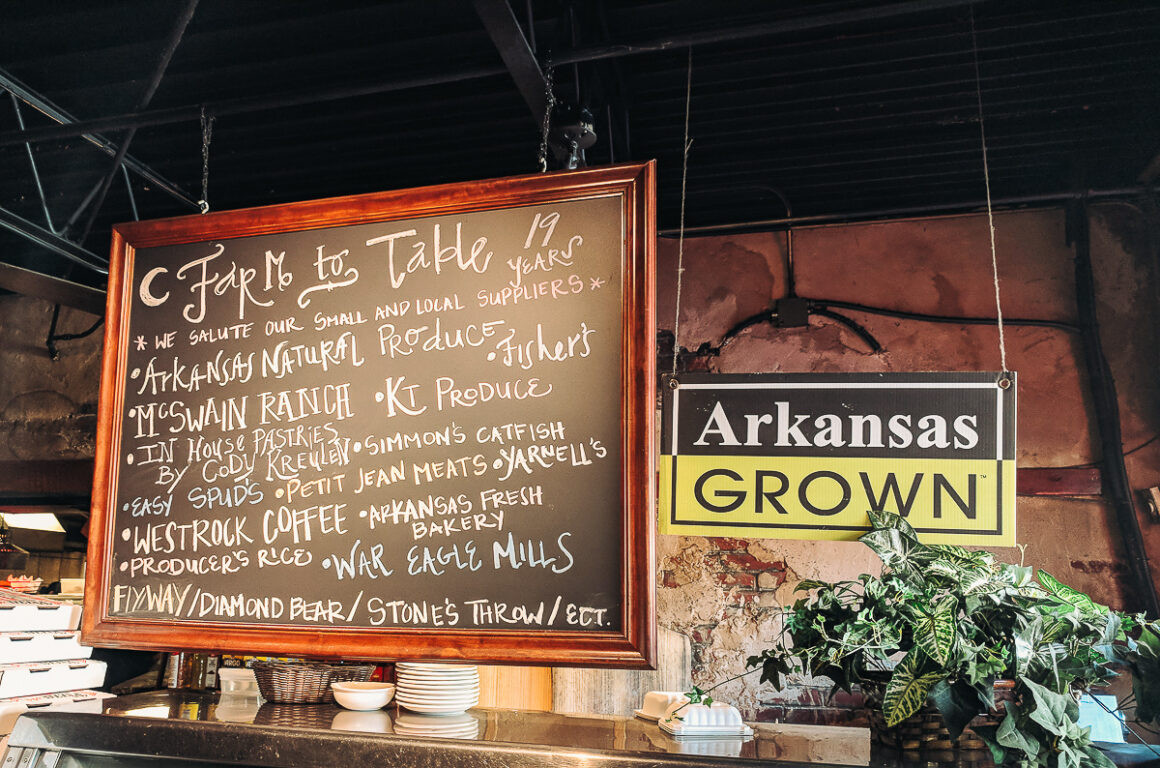 Farm to Table 19 YEARS
* WE SALUTE OUR SMALL AND LOCAL SUPPLIERS *
• ARKANSAS NATURAL PRODUCE • Fisher's
• McSWAIN RANCH • KT PRODUCE
• IN HOUSE PASTRIES
BY CODY KREULEN • SIMMON'S CATFISH
• EASY SPUD'S • PETIT JEAN MEATS • YARNELL'S
• WESTROCK COFFEE • ARKANSAS FRESH
BAKERY
• PRODUCER'S RICE • WAR EAGLE MILLS
FLYWAY/DIAMOND BEAR/STONE'S THROW/ECT.
Arkansas
GROWN™